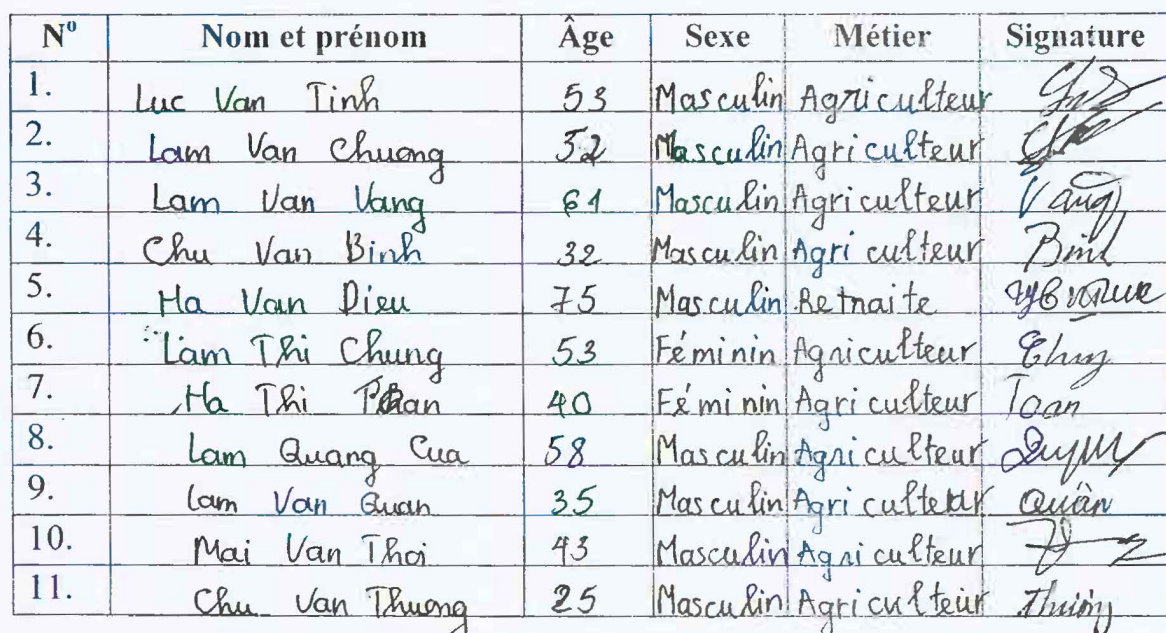 N° Nom et prénom Âge Sexe Métier Signature
1. Luc Van Tinh 53 Masculin Agriculteur
2. Lam Van Chuong 52 Masculin Agriculteur
3. Lam Van Vang 61 Masculin Agriculteur Vang
4. Chu Van Binh 32 Masculin Agriculteur Binh
5. Ha Van Dieu 75 Masculin Retraite
6. Lam Thi Chung 53 Féminin Agriculteur
7. Ha Thi 40 Féminin Agriculteur Toan
8. Lam Quang Cua 58 Masculin Agriculteur
9. Lam Van Quan 35 Masculin Agriculteur Quân
10. Mai Van Thoi 43 Masculin Agriculteur
11. Chu Van Thuong 25 Masculin Agriculteur